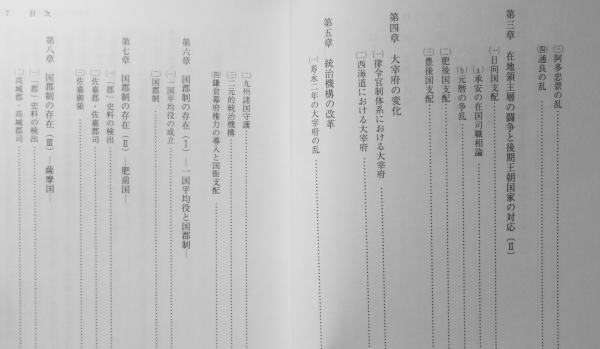 ㈢阿多忠景の乱
㈣通良の乱
第三章 在地領主層の闘争と後期王朝国家の対応(Ⅱ)
㈠日向国支配
ⓐ承安の在国司職相論
ⓑ元暦の争乱
㈡肥後国支配
㈢豊後国支配
第四章 大宰府の変化
㈠律令官制体系における大宰府
㈡西海道における大宰府
第五章 統治機構の改革
㈠寿永二年の大宰府の乱
㈡九州諸国守護
㈢二元的統治機構
㈣鎌倉幕府権力の導入と国衙支配
第六章 国郡制の存在(Ⅰ)―一国平均役と国郡制―
㈠一国平均役の成立
㈡国郡制
第七章 国郡制の存在(Ⅱ)―肥前国―
㈠「郡」史料の検出
㈡佐嘉郡・佐嘉郡司
㈢佐嘉御領
第八章 国郡制の存在(Ⅲ)―薩摩国―
㈠「郡」史料の検出
㈡高城郡・高城郡司
7 目次